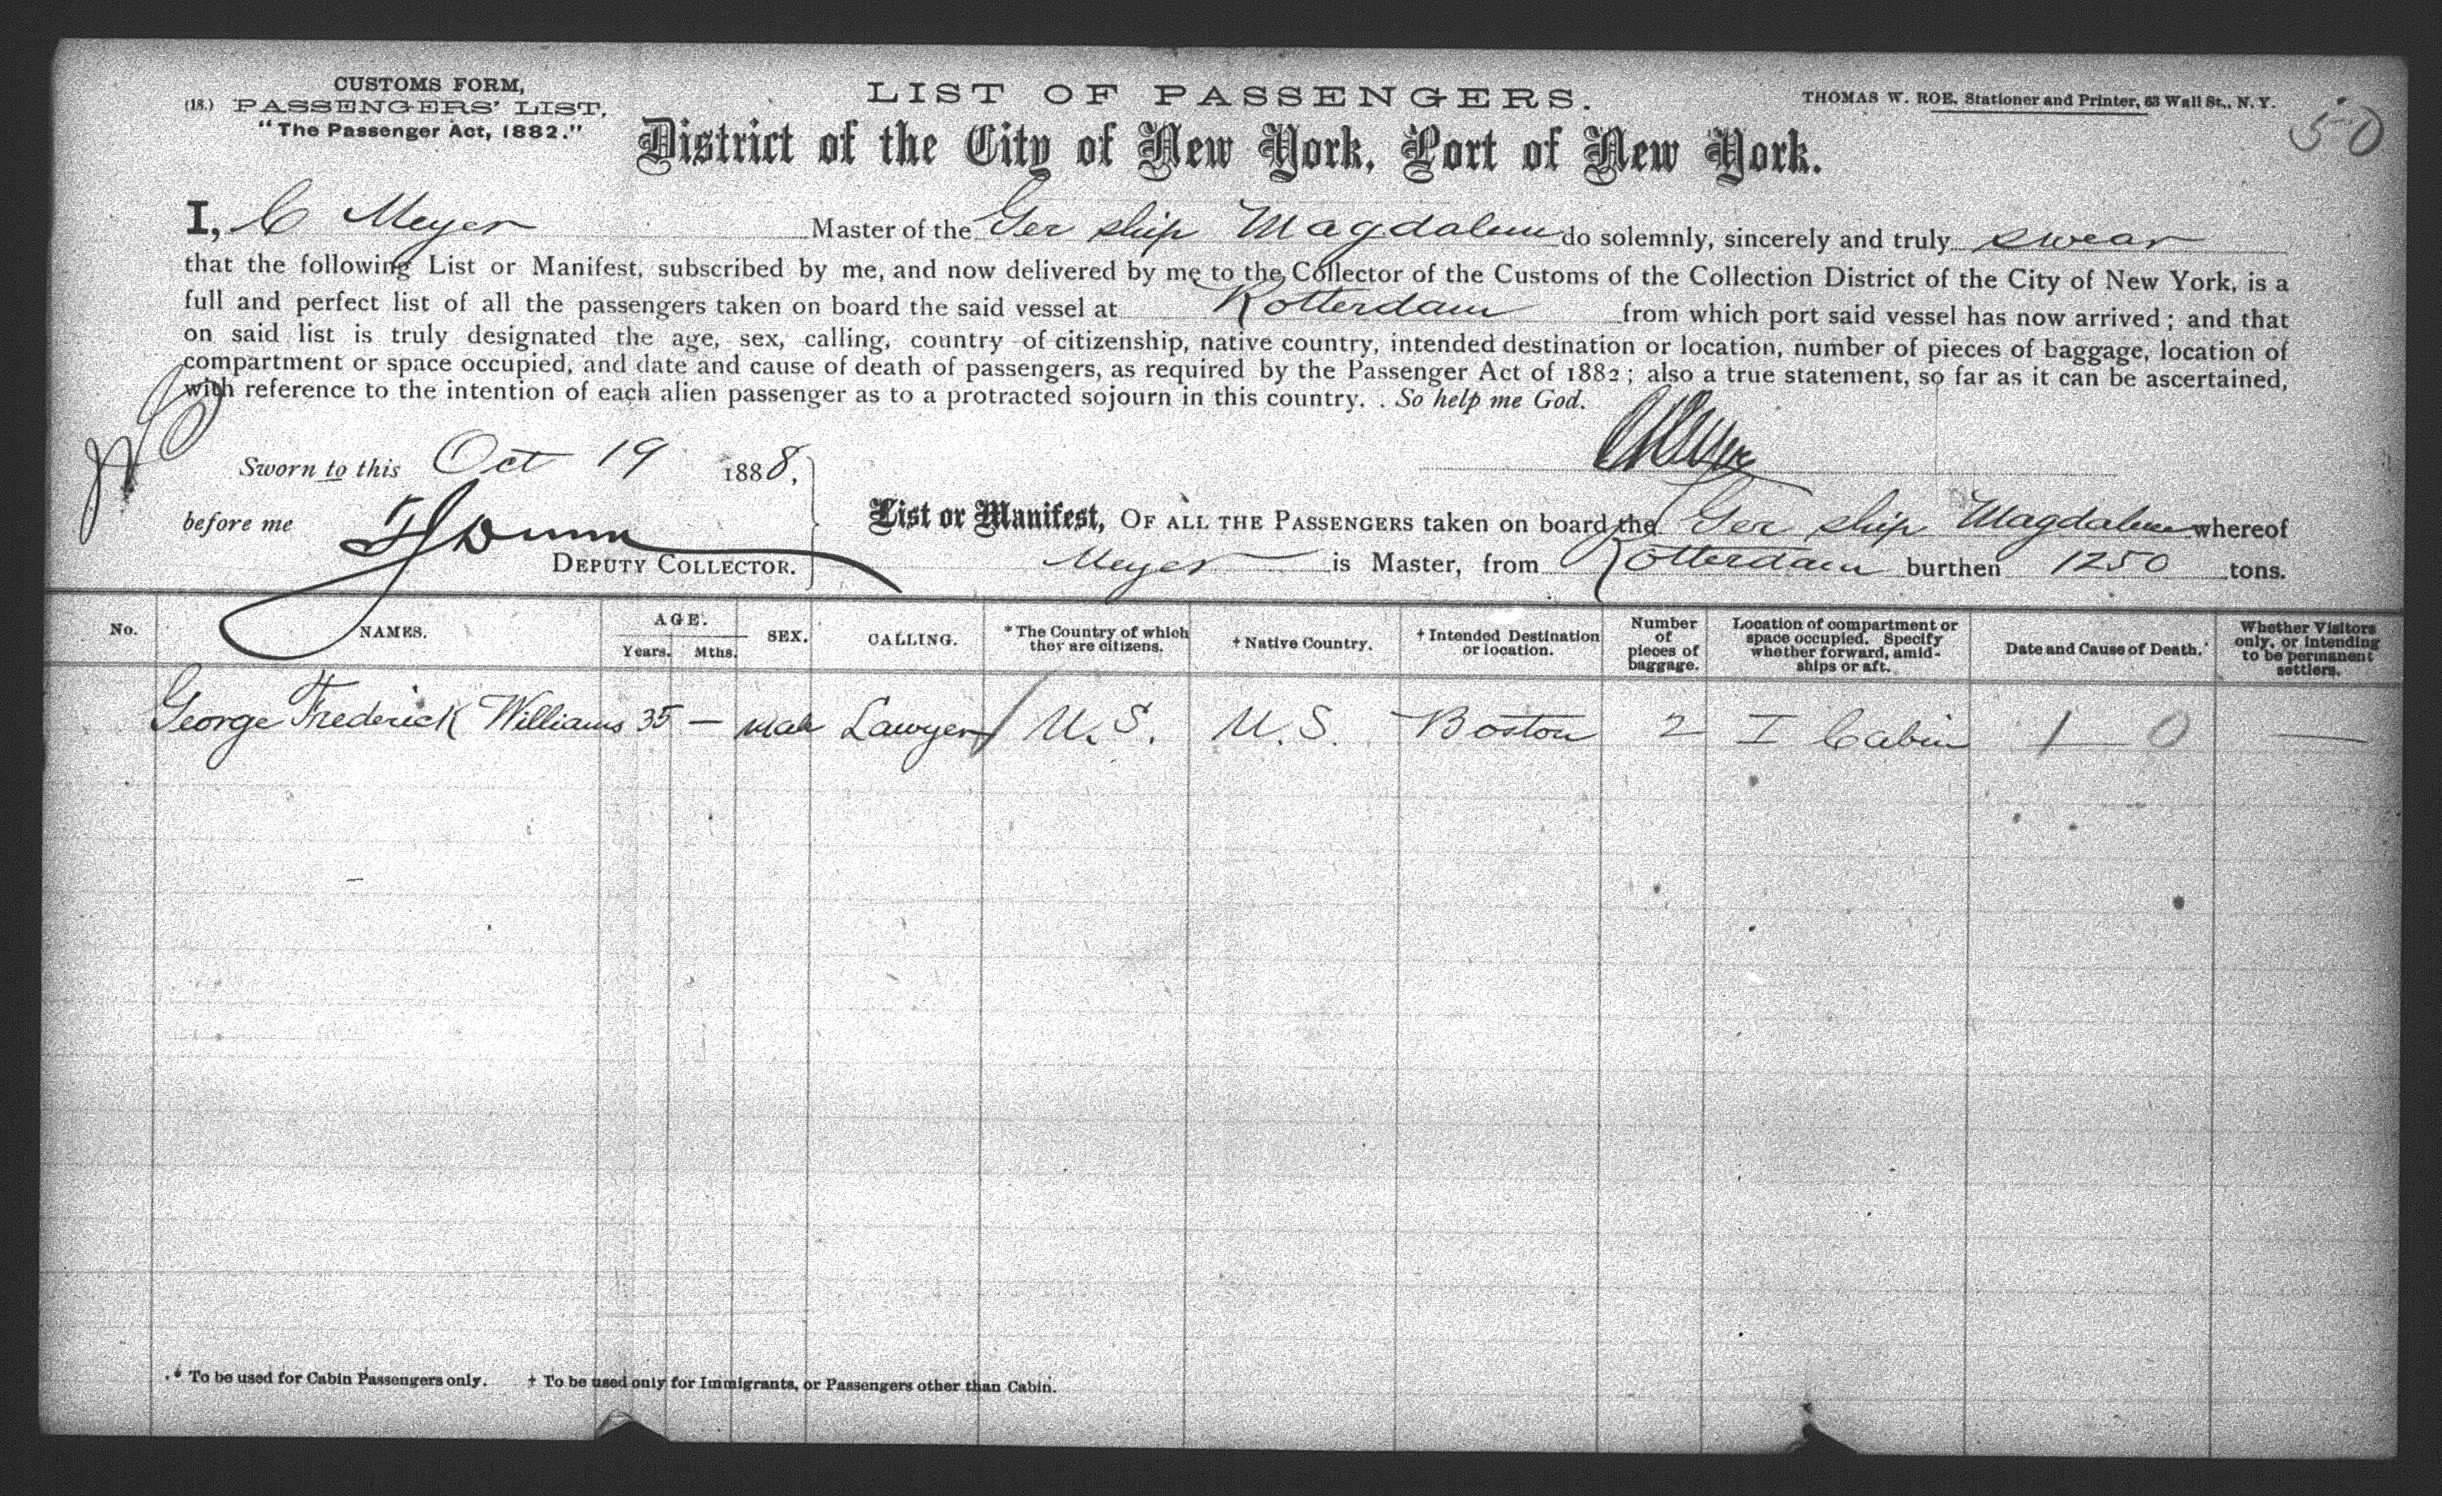 CUSTOMS FORM,
(18.) PASSENGERS' LIST,
"The Passenger Act, 1882."
LIST OF PASSENGERS.
THOMAS W. ROE, Stationer and Printer, 63 Wall St., N. Y.
50
District of the City of New York, Port of New York.
I, C Meyer Master of the Ger ship Magdalene do solemnly, sincerely and truly swear
that the following List or Manifest, subscribed by me, and now delivered by me to the Collector of the Customs of the Collection District of the City of New York, is a
full and perfect list of all the passengers taken on board the said vessel at Rotterdam from which port said vessel has now arrived; and that
on said list is truly designated the age, sex, calling, country of citizenship, native country, intended destination or location, number of pieces of baggage, location of
compartment or space occupied, and date and cause of death of passengers, as required by the Passenger Act of 1882; also a true statement, so far as it can be ascertained,
with reference to the intention of each alien passenger as to a protracted sojourn in this country. So help me God.
Sworn to this Oct 19 1888,
CMeyer
before me
DEPUTY COLLECTOR.
List or Manifest, OF ALL THE PASSENGERS taken on board the Ger ship Magdalene whereof
Meyer is Master, from Rotterdam burthen 1250 tons.
No. NAMES. AGE. Years. Mths. SEX. CALLING. * The Country of which they are citizens. † Native Country. † Intended Destination or location. Number of pieces of baggage. Location of compartment or space occupied. Specify whether forward, amidships or aft. Date and Cause of Death. Whether Visitors only, or intending to be permanent settlers.
George Frederick Williams 35 — male Lawyer / U.S. U.S. Boston 2 I Cabin 1—0 —
* To be used for Cabin Passengers only. † To be used only for Immigrants, or Passengers other than Cabin.